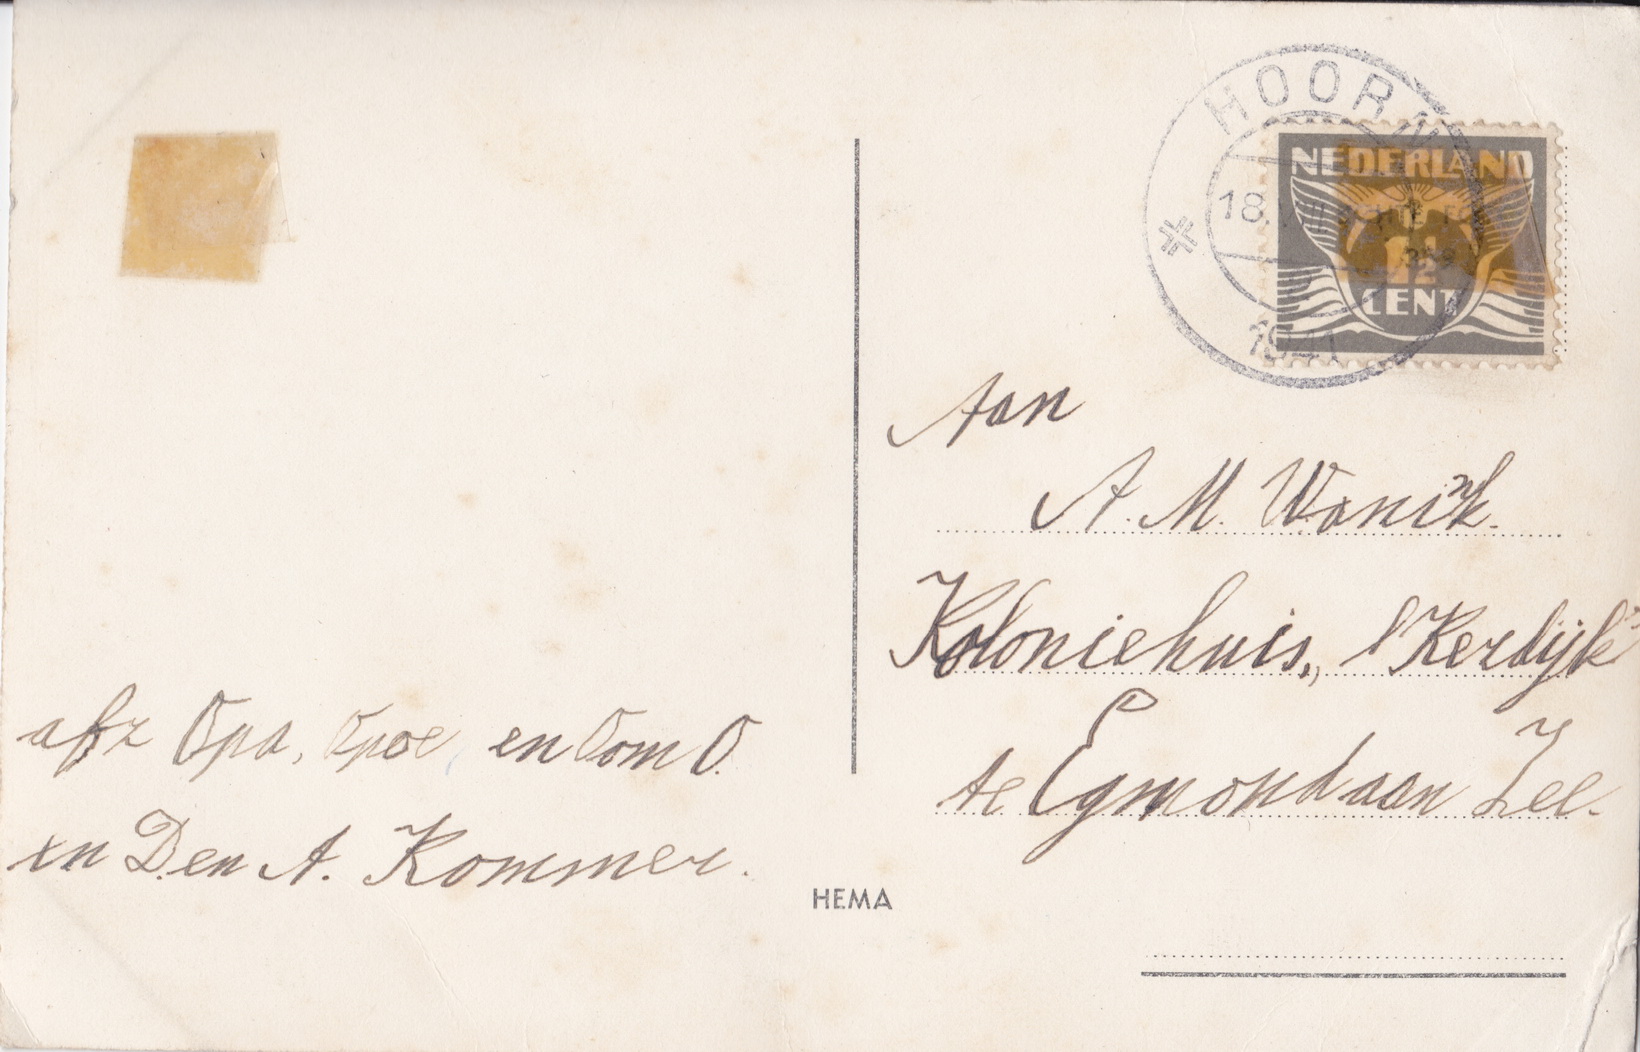 HOORN
18
1941
NEDERLAND
1½
CENT
Aan
A. M. Wonink.
Koloniehuis, "Kerdijk"
te Egmond aan Zee.
afz Opa, Opoe en Oom O.
en Den A. Kommer.
HEMA